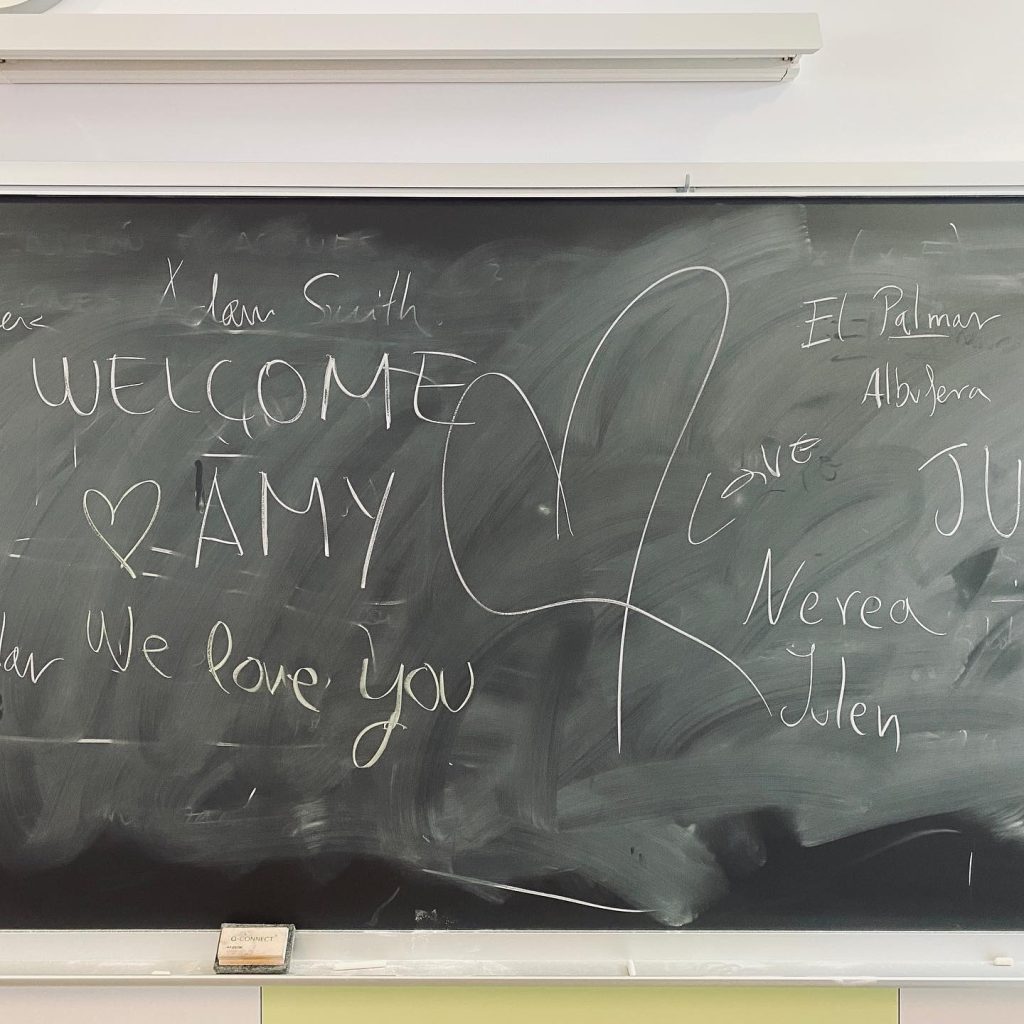 Adam Smith.
WELCOME
AMY
We love you
El Palmar
Albufera
Love
JU
Nerea
Julen
Q-CONNECT